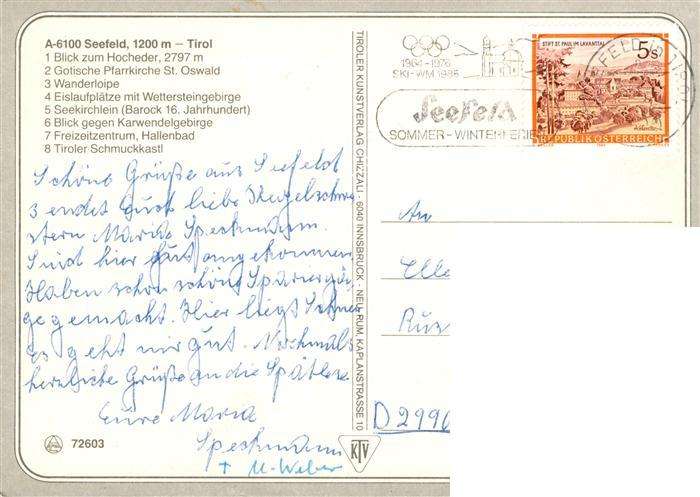 A-6100 Seefeld, 1200 m – Tirol
1 Blick zum Hocheder, 2797 m
2 Gotische Pfarrkirche St. Oswald
3 Wanderloipe
4 Eislaufplätze mit Wettersteingebirge
5 Seekirchlein (Barock 16. Jahrhundert)
6 Blick gegen Karwendelgebirge
7 Freizeitzentrum, Hallenbad
8 Tiroler Schmuckkastl
Schöne Grüße aus Seefeld
sendet Euch liebe Kegelschwe
stern Maria Speckmann.
Sind hier gut angekommen
Haben schon schöne Spaziergän
ge gemacht. Hier liegt Schnee
es geht mir gut. Nochmals
herzliche Grüße an die Spätlese
Eure Maria
Speckmann
+ M. Weber
72603
TIROLER KUNSTVERLAG CHIZZALI - 6040 INNSBRUCK - NEU RUM, KAPLANSTRASSE 10
KTV
1964-1976
SKI-WM 1985
Seefeld
SOMMER-WINTERFERIE
STIFT ST. PAUL IM LAVANTTAL
5 S
REPUBLIK ÖSTERREICH
An
D 2990